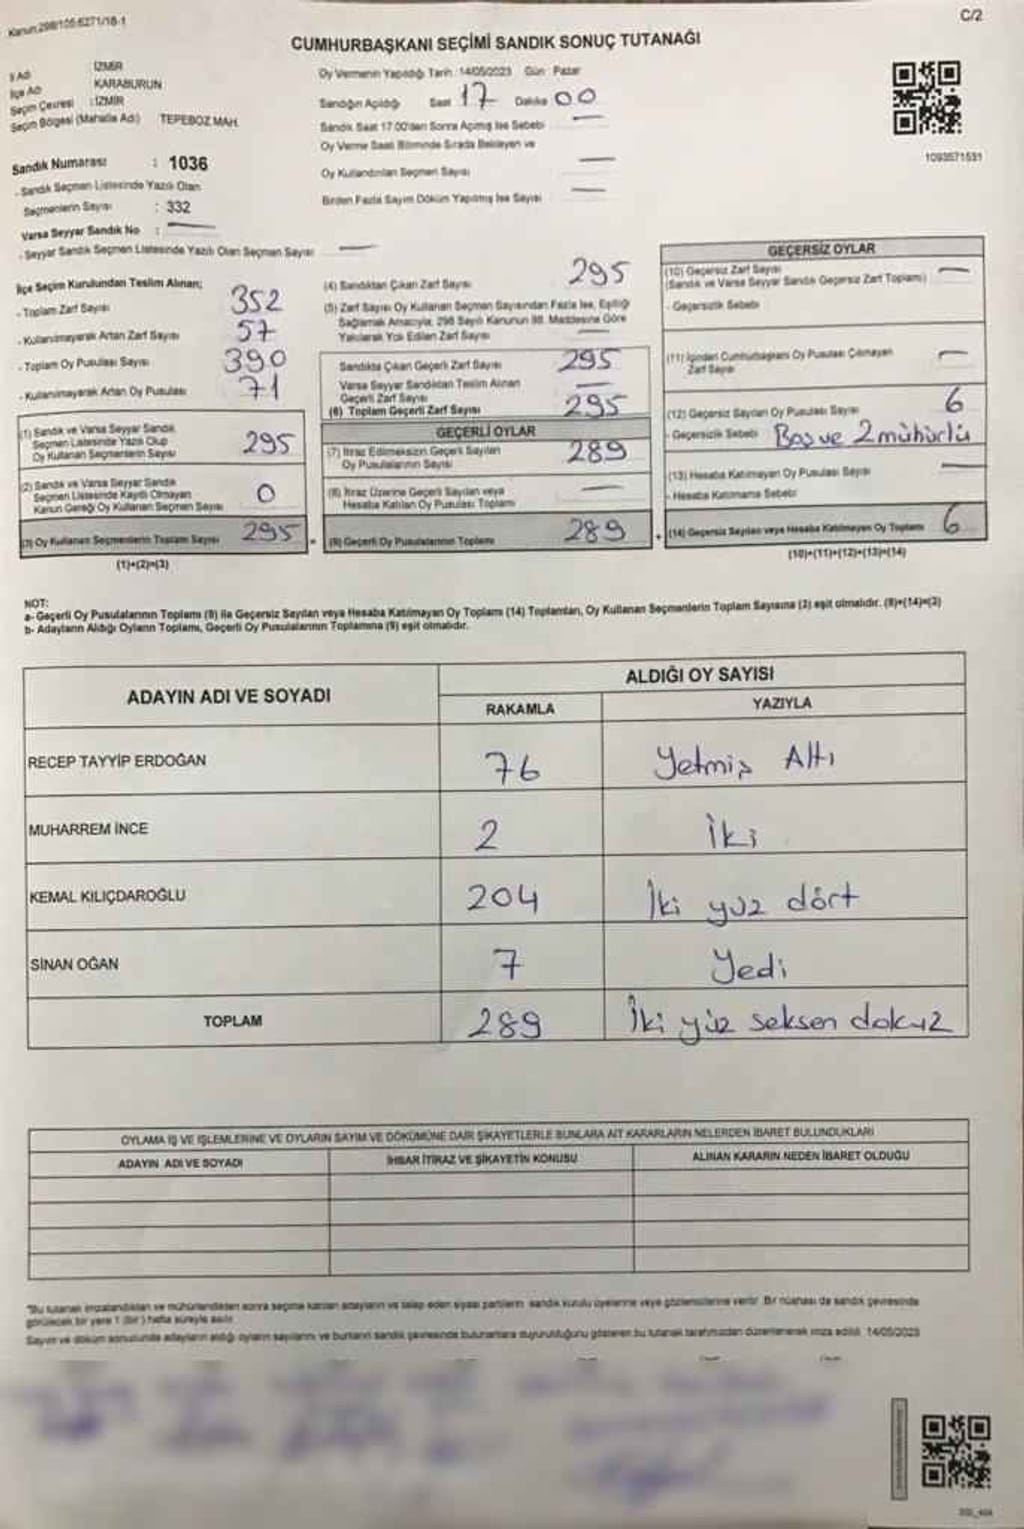 Kanun:298/105-6271/18-1
C/2
CUMHURBAŞKANI SEÇİMİ SANDIK SONUÇ TUTANAĞI
İl Adı İZMİR
İlçe Adı KARABURUN
Seçim Çevresi : İZMİR
Seçim Bölgesi (Mahalle Adı) TEPEBOZ MAH.
Sandık Numarası : 1036
- Sandık Seçmen Listesinde Yazılı Olan
Seçmenlerin Sayısı : 332
Varsa Seyyar Sandık No :
- Seyyar Sandık Seçmen Listesinde Yazılı Olan Seçmen Sayısı
Oy Vermenin Yapıldığı Tarih :14/05/2023 Gün : Pazar
Sandığın Açıldığı Saat 17 Dakika 00
Sandık Saat 17.00'den Sonra Açılmış İse Sebebi
Oy Verme Saati Bitiminde Sırada Bekleyen ve
Oy Kullandırılan Seçmen Sayısı
Birden Fazla Sayım Döküm Yapılmış İse Sayısı
1093571531
İlçe Seçim Kurulundan Teslim Alınan;
- Toplam Zarf Sayısı 352
- Kullanılmayarak Artan Zarf Sayısı 57
- Toplam Oy Pusulası Sayısı 390
- Kullanılmayarak Artan Oy Pusulası 71
(1) Sandık ve Varsa Seyyar Sandık
Seçmen Listesinde Yazılı Olup
Oy Kullanan Seçmenlerin Sayısı 295
(2) Sandık ve Varsa Seyyar Sandık
Seçmen Listesinde Kayıtlı Olmayan
Kanun Gereği Oy Kullanan Seçmen Sayısı 0
(3) Oy Kullanan Seçmenlerin Toplam Sayısı 295
(1)+(2)=(3)
(4) Sandıktan Çıkan Zarf Sayısı 295
(5) Zarf Sayısı Oy Kullanan Seçmen Sayısından Fazla İse, Eşitliği
Sağlamak Amacıyla, 298 Sayılı Kanunun 98. Maddesine Göre
Yakılarak Yok Edilen Zarf Sayısı
Sandıkta Çıkan Geçerli Zarf Sayısı 295
Varsa Seyyar Sandıktan Teslim Alınan
Geçerli Zarf Sayısı
(6) Toplam Geçerli Zarf Sayısı 295
GEÇERLİ OYLAR
(7) İtiraz Edilmeksizin Geçerli Sayılan
Oy Pusulalarının Sayısı 289
(8) İtiraz Üzerine Geçerli Sayılan veya
Hesaba Katılan Oy Pusulası Toplamı
(9) Geçerli Oy Pusulalarının Toplamı 289
GEÇERSİZ OYLAR
(10) Geçersiz Zarf Sayısı
(Sandık ve Varsa Seyyar Sandık Geçersiz Zarf Toplamı)
- Geçersizlik Sebebi
(11) İçinden Cumhurbaşkanı Oy Pusulası Çıkmayan
Zarf Sayısı
(12) Geçersiz Sayılan Oy Pusulası Sayısı 6
- Geçersizlik Sebebi Boş ve 2 mühürlü
(13) Hesaba Katılmayan Oy Pusulası Sayısı
- Hesaba Katılmama Sebebi
(14) Geçersiz Sayılan veya Hesaba Katılmayan Oy Toplamı 6
(10)+(11)+(12)+(13)=(14)
NOT:
a- Geçerli Oy Pusulalarının Toplamı (9) ile Geçersiz Sayılan veya Hesaba Katılmayan Oy Toplamı (14) Toplamları, Oy Kullanan Seçmenlerin Toplam Sayısına (3) eşit olmalıdır. (9)+(14)=(3)
b- Adayların Aldığı Oyların Toplamı, Geçerli Oy Pusulalarının Toplamına (9) eşit olmalıdır.
ADAYIN ADI VE SOYADI
ALDIĞI OY SAYISI
RAKAMLA YAZIYLA
RECEP TAYYİP ERDOĞAN 76 Yetmiş Altı
MUHARREM İNCE 2 İki
KEMAL KILIÇDAROĞLU 204 İki yüz dört
SİNAN OĞAN 7 Yedi
TOPLAM 289 İki yüz seksen dokuz
OYLAMA İŞ VE İŞLEMLERİNE VE OYLARIN SAYIM VE DÖKÜMÜNE DAİR ŞİKAYETLERLE BUNLARA AİT KARARLARIN NELERDEN İBARET BULUNDUKLARI
ADAYIN ADI VE SOYADI İHBAR İTİRAZ VE ŞİKAYETİN KONUSU ALINAN KARARIN NEDEN İBARET OLDUĞU
*Bu tutanak imzalandıktan ve mühürlendikten sonra seçime katılan adayların ve talep eden siyasi partilerin sandık kurulu üyelerine veya gözlemcilerine verilir. Bir nüshası da sandık çevresinde
görülecek bir yere 1 (bir) hafta süreyle asılır.
Sayım ve döküm sonucunda adayların aldığı oyların sayılarını ve bunların sandık çevresinde bulunanlara duyurulduğunu gösteren bu tutanak tarafımızdan düzenlenerek imza edildi. 14/05/2023